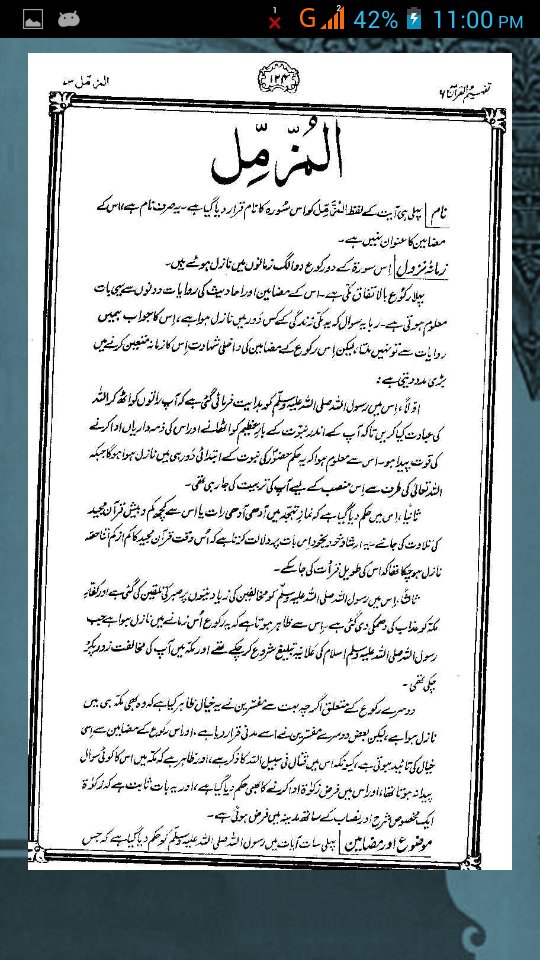 1 2 G 42% 11:00 PM
المزمل ۷۳ ۱۲۴ تفہیم القرآن ۶
الْمُزَّمِّل
نام پہلی ہی آیت کے لفظ المُزَّمِّل کو اس سُورہ کا نام قرار دیا گیا ہے۔ یہ صرف نام ہے، اس کے
مضامین کا عنوان نہیں ہے۔
زمانۂ نزول اِس سورۃ کے دو رکوع دو الگ زمانوں میں نازل ہوئے ہیں۔
پہلا رکوع بالاتفاق مکّی ہے۔ اس کے مضامین اور احادیث کی روایات دونوں سے یہی بات
معلوم ہوتی ہے۔ رہا یہ سوال کہ یہ مکّی زندگی کے کس دَور میں نازل ہوا ہے، اِس کا جواب ہمیں
روایات سے تو نہیں ملتا، لیکن اِس رکوع کے مضامین کی داخلی شہادت اِس کا زمانہ متعین کرنے میں
بڑی مدد دیتی ہے:
اوّلاً، اِس میں رسول اللہ صلی اللہ علیہ وسلّم کو ہدایت فرمائی گئی ہے کہ آپ راتوں کو اٹھ کر اللہ
کی عبادت کیا کریں تاکہ آپ کے اندر نبوّت کے بارِ عظیم کو اٹھانے اور اس کی ذمہ داریاں ادا کرنے
کی قوت پیدا ہو۔ اس سے معلوم ہوا کہ یہ حکم حضورؐ کی نبوت کے ابتدائی دَور ہی میں نازل ہوا ہوگا جبکہ
اللہ تعالیٰ کی طرف سے اِس منصب کے لیے آپ کی تربیت کی جا رہی تھی۔
ثانیاً، اِس میں حکم دیا گیا ہے کہ نمازِ تہجد میں آدھی آدھی رات یا اس سے کچھ کم و بیش قرآن مجید
کی تلاوت کی جائے۔ یہ ارشاد خود بخود اِس بات پر دلالت کرتا ہے کہ اُس وقت قرآن مجید کا کم از کم اتنا حصّہ
نازل ہو چکا تھا کہ اس کی طویل قرأت کی جا سکے۔
ثالثاً، اِس میں رسول اللہ صلی اللہ علیہ وسلّم کو مخالفین کی زیادتیوں پر صبر کی تلقین کی گئی ہے اور کفّارِ
مکّہ کو عذاب کی دھمکی دی گئی ہے۔ اِس سے ظاہر ہوتا ہے کہ یہ رکوع اُس زمانے میں نازل ہوا ہے جب
رسول اللہ صلی اللہ علیہ وسلّم اسلام کی علانیہ تبلیغ شروع کر چکے تھے اور مکّہ میں آپ کی مخالفت زور پکڑ
چکی تھی۔
دوسرے رکوع کے متعلق اگرچہ بہت سے مفسّرین نے یہ خیال ظاہر کیا ہے کہ وہ بھی مکّہ ہی میں
نازل ہوا ہے، لیکن بعض دوسرے مفسّرین نے اسے مدنی قرار دیا ہے، اور اس رکوع کے مضامین سے اِسی
خیال کی تائید ہوتی ہے، کیونکہ اس میں قتال فی سبیل اللہ کا ذکر ہے، اور ظاہر ہے کہ مکّہ میں اس کا کوئی سوال
پیدا نہ ہوتا تھا، اور اس میں فرض زکوٰۃ ادا کرنے کا بھی حکم دیا گیا ہے، اور یہ بات ثابت ہے کہ زکوٰۃ
ایک مخصوص شرح اور نصاب کے ساتھ مدینہ میں فرض ہوئی ہے۔
موضوع اور مضامین پہلی سات آیات میں رسول اللہ صلی اللہ علیہ وسلّم کو حکم دیا گیا ہے کہ جس